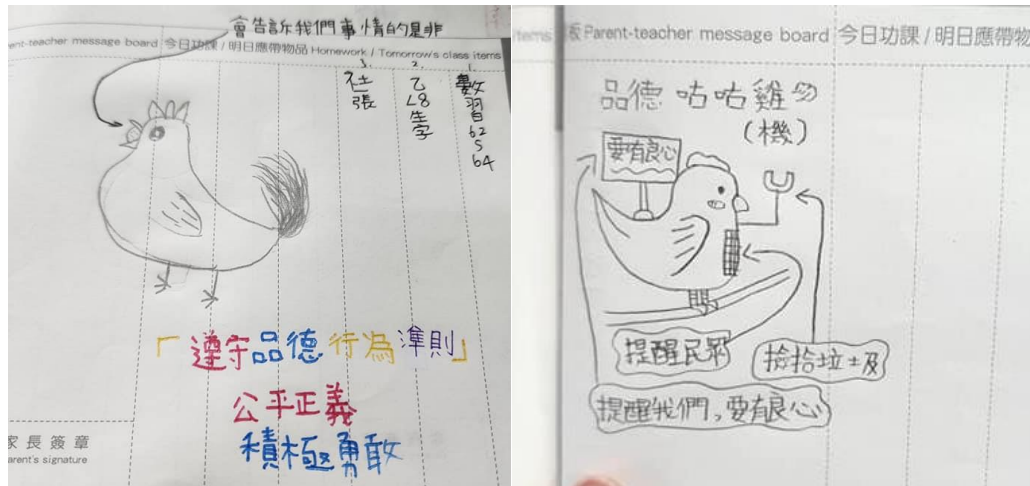 會告訴我們事情的是非
ent-teacher message board 今日功課 / 明日應帶物品 Homework / Tomorrow's class items
1. 數習62 5 64
2. 乙L8生字
3. 社一張
「遵守品德行為準則」
公平正義
積極勇敢
家長簽章
arent's signature
items
板 Parent-teacher message board 今日功課 / 明日應帶物
品德 咕咕雞
(機)
要有良心
提醒民眾
撿拾垃圾
提醒我們,要有良心